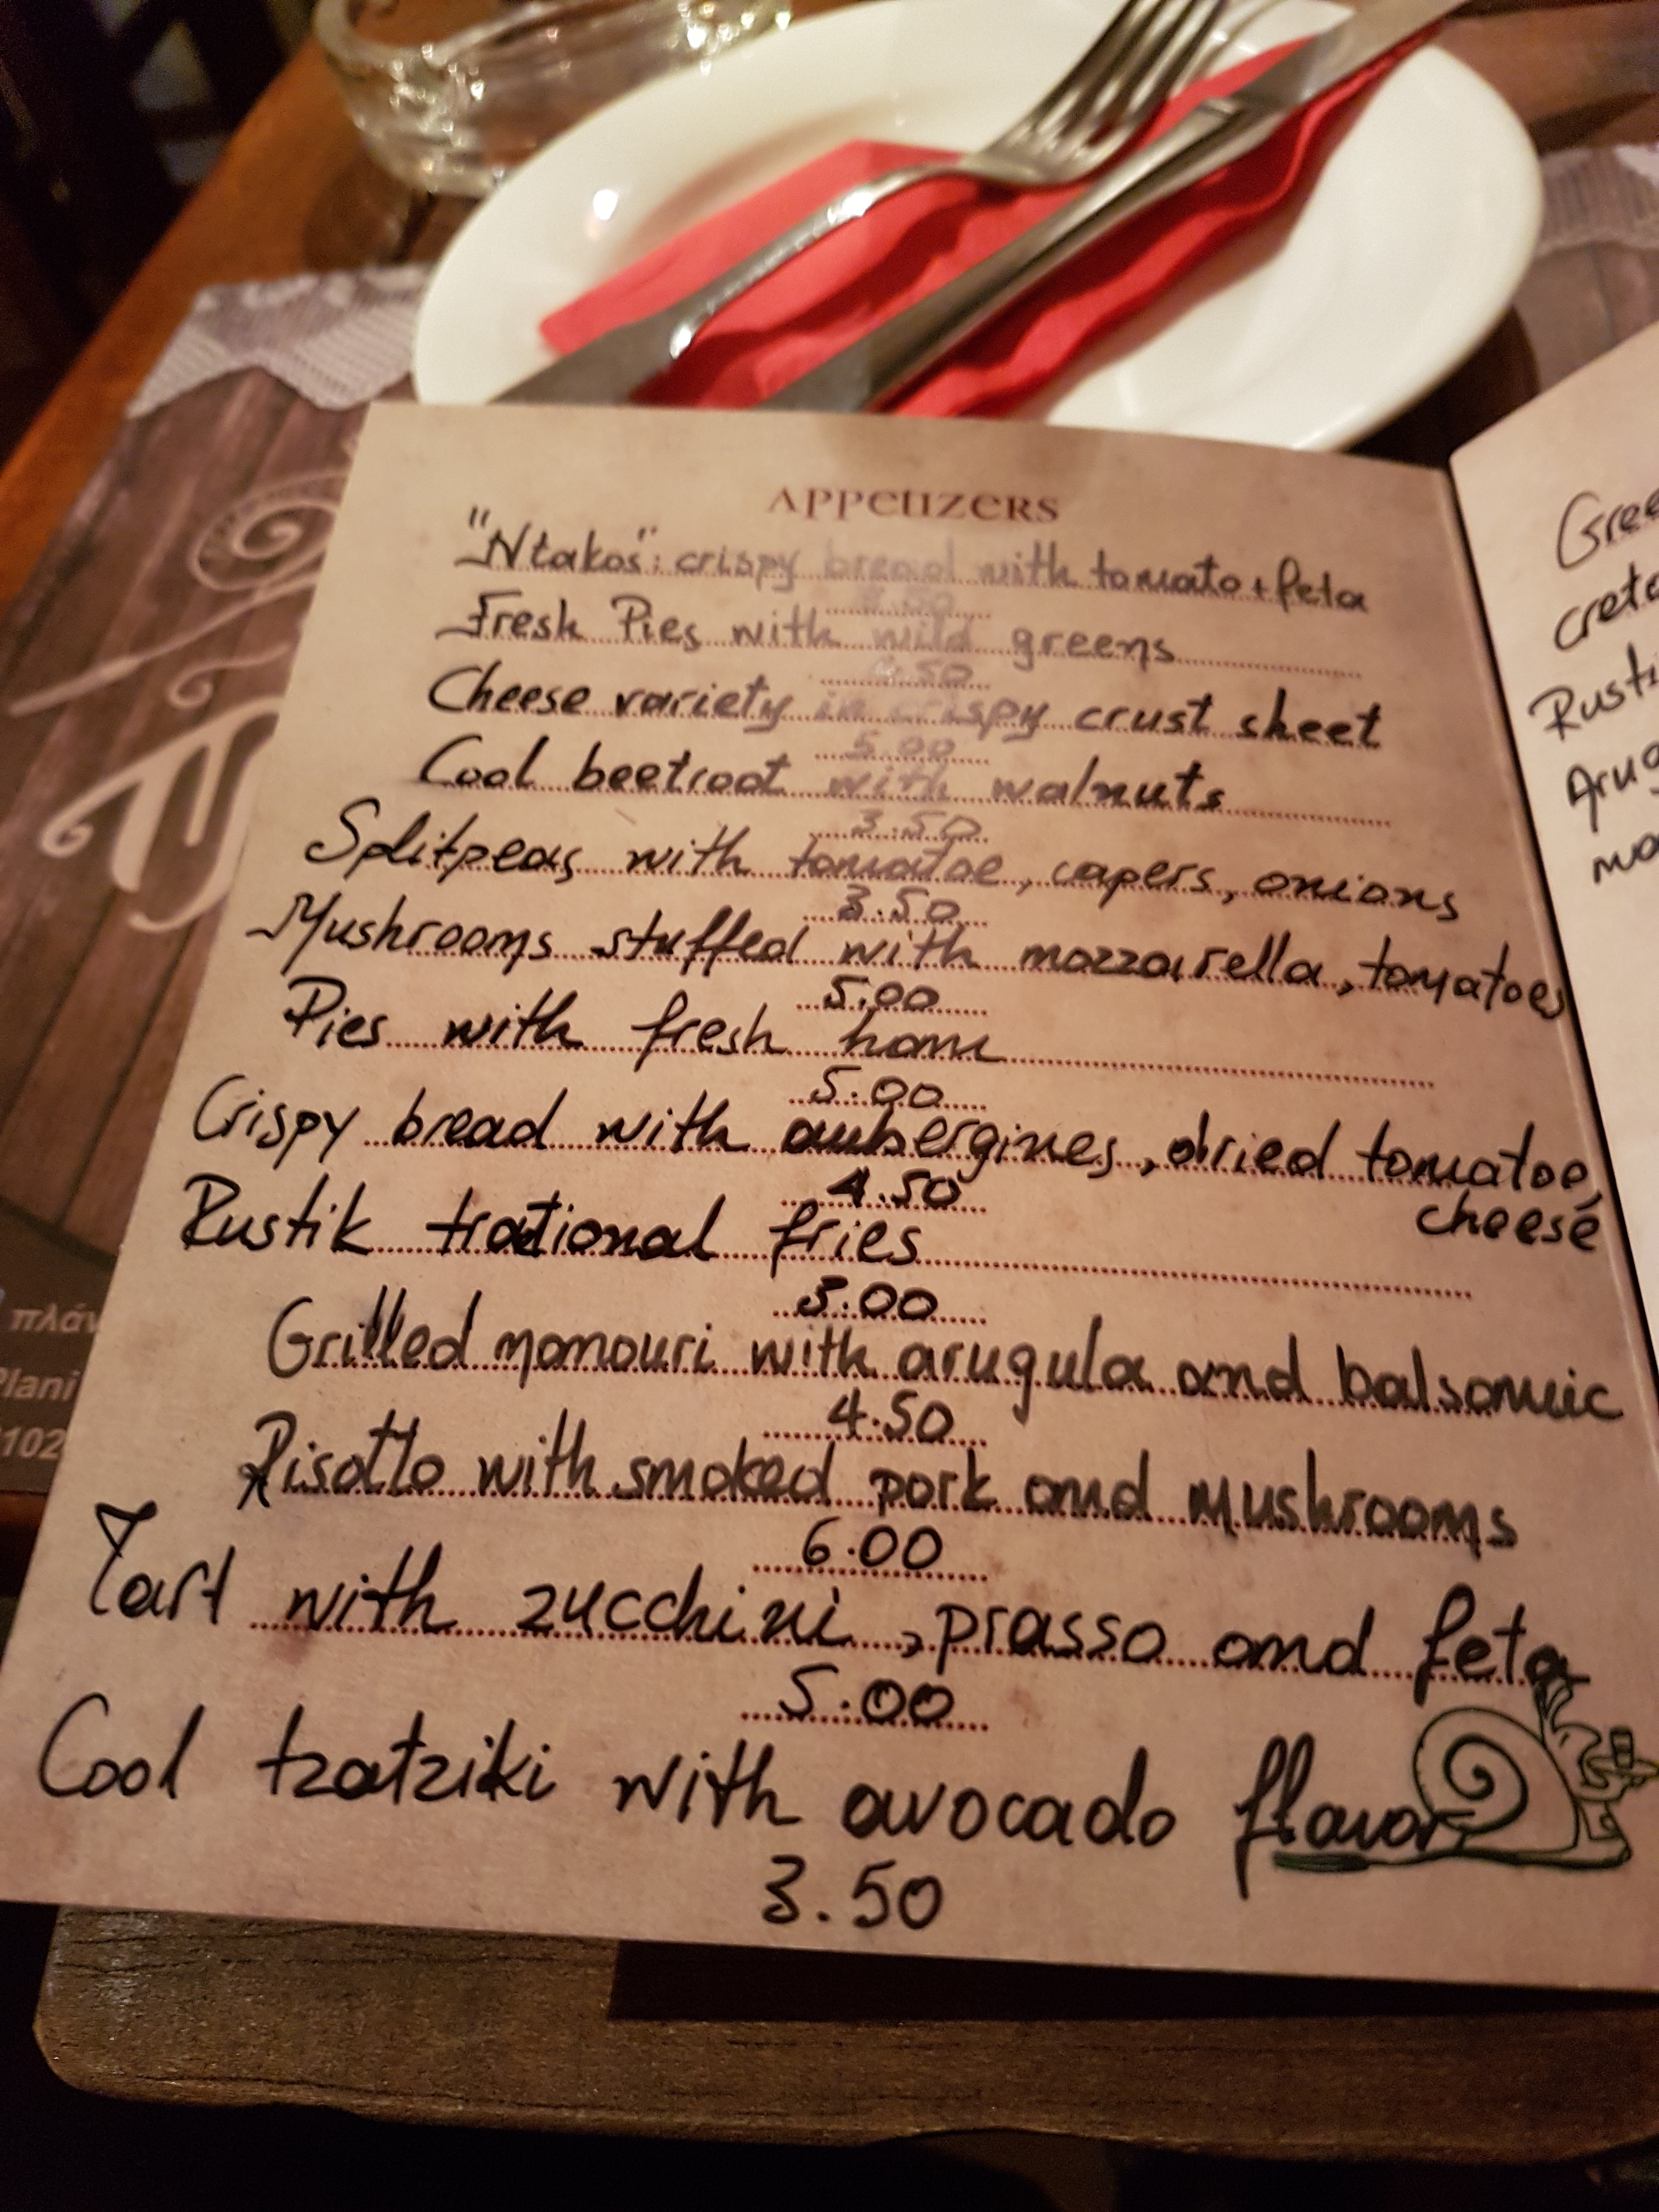 APPETIZERS
"Ntakos": crispy bread with tomato + feta
Fresh Pies with wild greens
4.50
Cheese variety in crispy crust sheet
5.00
Cool beetroot with walnuts
3.50
Splitpeas with tomatoe, capers, onions
3.50
Mushrooms stuffed with mozzarella, tomatoes
5.00
Pies with fresh ham
5.00
Crispy bread with aubergines, dried tomatoe,
cheese
4.50
Rustik trational fries
3.00
Grilled manouri with arugula and balsamic
4.50
Risotto with smoked pork and mushrooms
6.00
Tart with zucchini, prasso and feta
5.00
Cool tzatziki with avocado flavor
3.50
Gree
creta
Rusti
Arug
πλάν
Plani
102